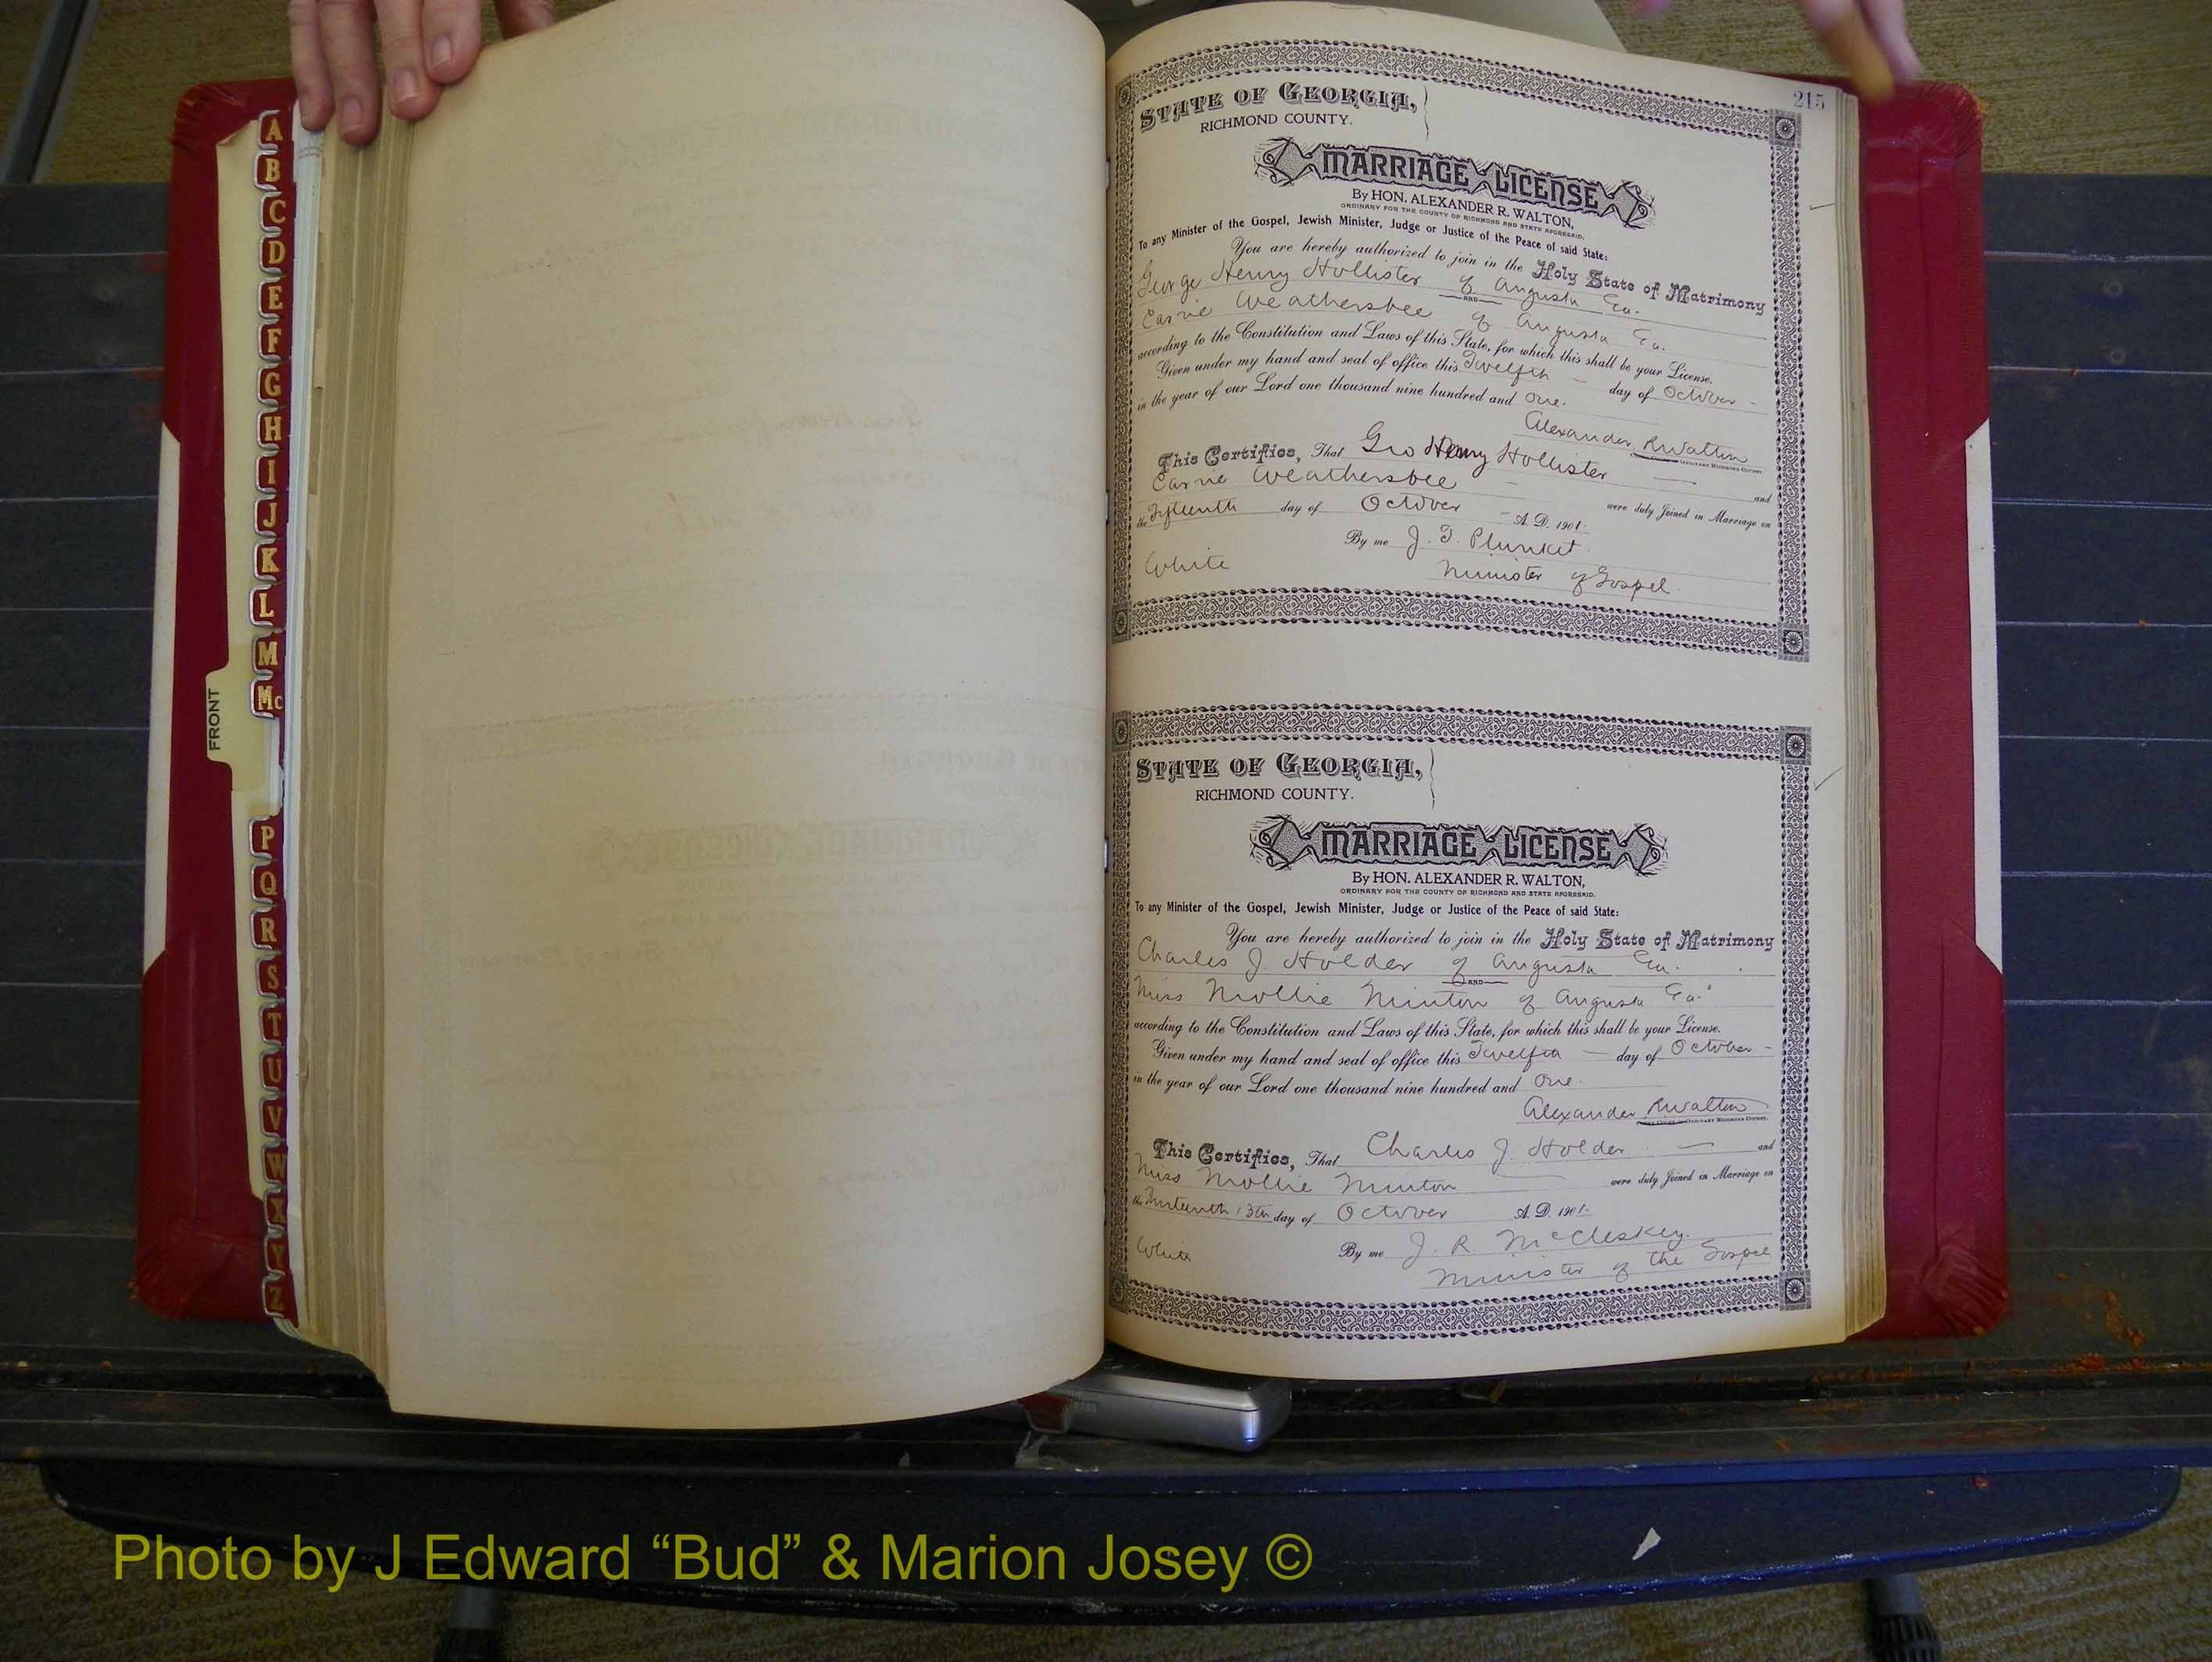 A
B
C
D
E
F
G
H
I
J
K
L
M
Mc
FRONT
P
Q
R
S
T
U
V
W
X
Y
Z
215
STATE OF GEORGIA,
RICHMOND COUNTY.
MARRIAGE LICENSE
By HON. ALEXANDER R. WALTON,
ORDINARY FOR THE COUNTY OF RICHMOND AND STATE AFORESAID.
To any Minister of the Gospel, Jewish Minister, Judge or Justice of the Peace of said State:
You are hereby authorized to join in the Holy State of Matrimony
George Henry Hollister of Augusta Ga.
AND
Carrie Weathersbee of Augusta Ga.
according to the Constitution and Laws of this State, for which this shall be your License.
Given under my hand and seal of office this Twelfth day of October
in the year of our Lord one thousand nine hundred and One.
Alexander R Walton
ORDINARY RICHMOND COUNTY.
This Certifies, That Geo Henry Hollister and
Carrie Weathersbee were duly Joined in Marriage on
the Fifteenth day of October A. D. 1901.
By me J. T. Plunket
White Minister of Gospel.
STATE OF GEORGIA,
RICHMOND COUNTY.
MARRIAGE LICENSE
By HON. ALEXANDER R. WALTON,
ORDINARY FOR THE COUNTY OF RICHMOND AND STATE AFORESAID.
To any Minister of the Gospel, Jewish Minister, Judge or Justice of the Peace of said State:
You are hereby authorized to join in the Holy State of Matrimony
Charles J. Holder of Augusta Ga.
AND
Miss Mollie Minton of Augusta Ga.
according to the Constitution and Laws of this State, for which this shall be your License.
Given under my hand and seal of office this Twelfth day of October
in the year of our Lord one thousand nine hundred and One.
Alexander R Walton
ORDINARY RICHMOND COUNTY.
This Certifies, That Charles J. Holder and
Miss Mollie Minton were duly Joined in Marriage on
the Thirteenth 13th day of October A. D. 1901.
White By me J. R. McCleskey.
Minister of the Gospel
Photo by J Edward “Bud” & Marion Josey ©